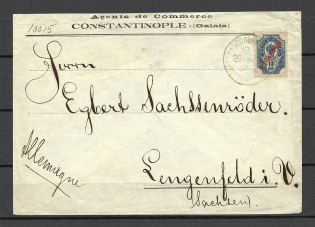 Agents de Commerce
CONSTANTINOPLE - (Galata)
10015
Herrn
Egbert Sachssenröder.
Allemagne
Lengenfeld i. V.
(Sachsen).